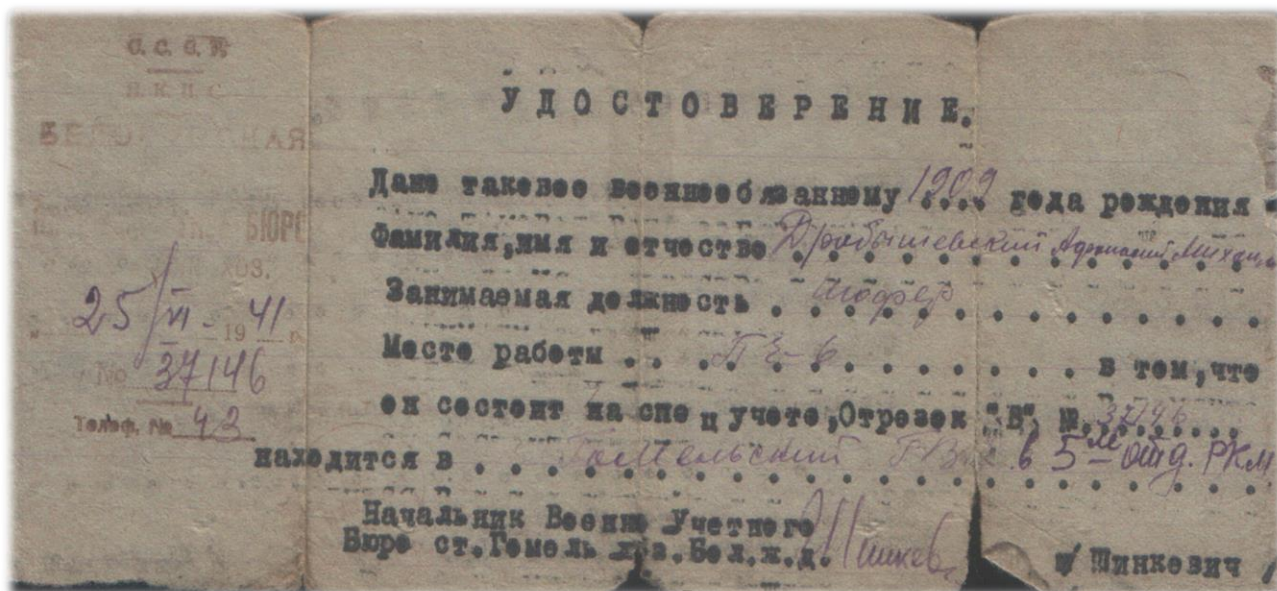 С.С.С.Р.
Н.К.П.С.
БЕЛО НАЯ
БЮРО
ХОЗ.
25/VI - 1941 г.
№ 37146
Телеф. № 42
УДОСТОВЕРЕНИЕ.
Дано таковое военнообязанному 1909 года рождения
Фамилия, имя и отчество Дробышевский
Занимаемая должность . шофер
Место работы . . ПЧ-6 . . . в том, что
он состоит на спец учете, Отрезок "В" № 37146
находится в . . . Гомельский в 5м отд. РКМ
Начальник Военно Учетного
Бюро ст. Гомель Бел.ж.д.
/ Шинкевич /